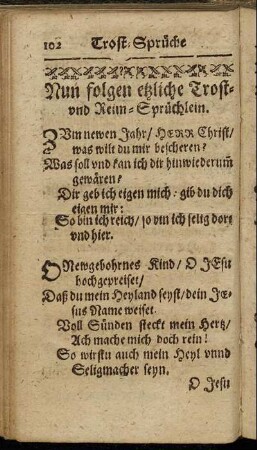 102 Trost-Sprüche
Nun folgen etzliche Trost-
vnd Reim-Sprüchlein.
ZVm newen Jahr/ HERR Christ/
was wilt du mir bescheren?
Was soll vnd kan ich dir hinwiederum̃
gewären?
Dir geb ich eigen mich: gib du dich
eigen mir:
So bin ich reich/ so bin ich selig dort
vnd hier.
O Newgebohrnes Kind/ O JEsu
hochgepreiset/
Daß du mein Heyland seyst/ dein JE-
sus Name weiset.
Voll Sünden steckt mein Hertz/
Ach mache mich doch rein!
So wirstu auch mein Heyl vnnd
Seligmacher seyn.
O Jesu